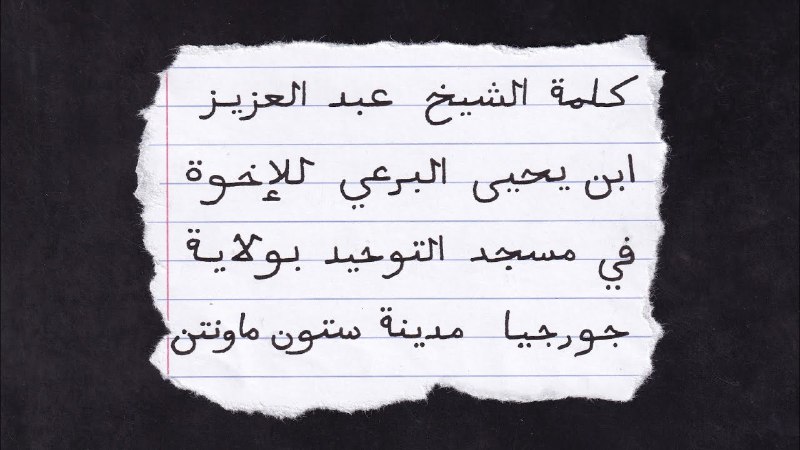 كلمة الشيخ عبد العزيز
ابن يحيى البرعي للإخوة
في مسجد التوحيد بولاية
جورجيا مدينة ستون ماونتن